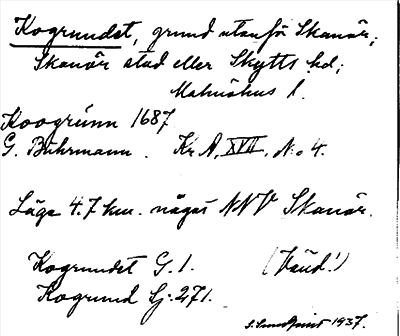 Kogrundet, grund utanför Skanör;
Skanör stad eller Skytts hd;
Malmöhus l.
Koogrúnn 1687
G. Buhrmann. Kr. A, XVII, No 4.
Läge 4.7 km. någas NNV Skanör.
Kogrundet G. 1. (Vänd!)
Kogrund Sj: 271.
S. Sundqvist 1937.